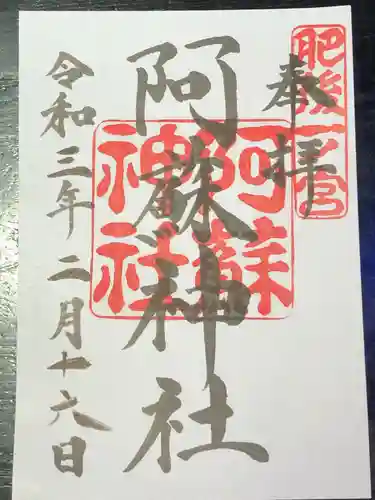 奉拝
肥後一ノ宮
阿蘇神社
阿蘇神社
令和三年二月十六日